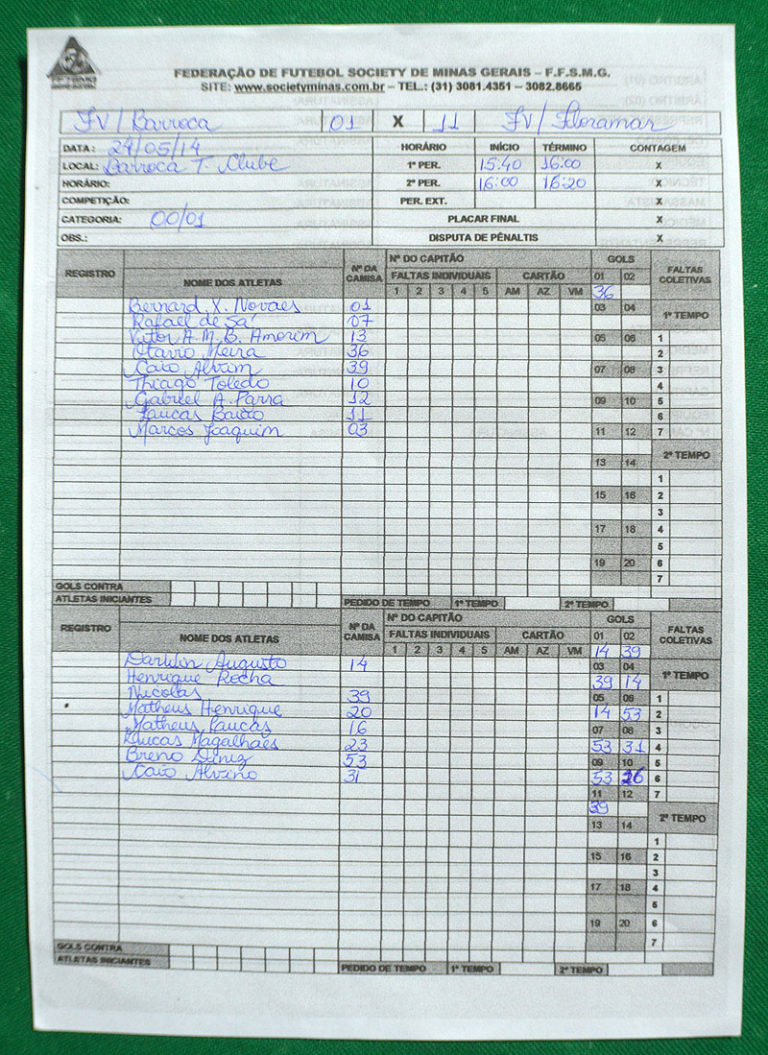 FEDERAÇÃO DE FUTEBOL SOCIETY DE MINAS GERAIS – F.F.S.M.G.
SITE: www.societyminas.com.br – TEL.: (31) 3081.4351 – 3082.8665
FV/Barroca 01 X 11 FV/Floramar
DATA: 24/05/14 HORÁRIO INÍCIO TÉRMINO CONTAGEM
LOCAL: Barroca T. Clube 1º PER. 15:40 16:00 X
HORÁRIO: 2º PER. 16:00 16:20 X
COMPETIÇÃO: PER. EXT. X
CATEGORIA: 00/01 PLACAR FINAL X
OBS.: DISPUTA DE PÊNALTIS X
REGISTRO NOME DOS ATLETAS Nº DA CAMISA Nº DO CAPITÃO GOLS FALTAS COLETIVAS
FALTAS INDIVIDUAIS CARTÃO 01 02
1 2 3 4 5 AM AZ VM 36
Bernard X. Novaes 01 03 04 1º TEMPO
Rafael de Sá 07
Vitor A. M. B. Amorim 13 05 06 1
Otavio Meira 36 2
Caio Alvim 39 07 08 3
Thiago Toledo 10 4
Gabriel A. Parra 12 09 10 5
Lucas Baião 11 6
Marcos Joaquim 03 11 12 7
2º TEMPO
13 14
1
15 16 2
3
17 18 4
5
19 20 6
7
GOLS CONTRA
ATLETAS INICIANTES PEDIDO DE TEMPO 1º TEMPO 2º TEMPO
REGISTRO NOME DOS ATLETAS Nº DA CAMISA Nº DO CAPITÃO GOLS FALTAS COLETIVAS
FALTAS INDIVIDUAIS CARTÃO 01 02
1 2 3 4 5 AM AZ VM 14 39
Augusto 14 03 04
Henrique Rocha 39 14 1º TEMPO
Nicolas 39 05 06 1
Matheus Henrique 20 14 53 2
Matheus Lucas 16 07 08 3
Lucas Magalhães 23 53 31 4
Breno Diniz 53 09 10 5
Caio Alvino 31 53 6
11 12 7
39 2º TEMPO
13 14
1
15 16 2
3
17 18 4
5
19 20 6
7
GOLS CONTRA
ATLETAS INICIANTES PEDIDO DE TEMPO 1º TEMPO 2º TEMPO